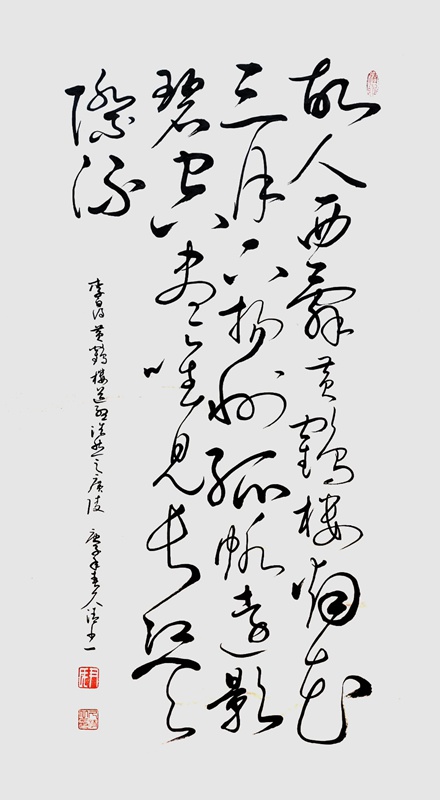 故人西辭黄鶴樓烟花
三月下揚州孤帆遠影
碧空盡唯見長江天
際流
李白詩黄鶴樓送孟浩然之廣陵 庚子年春